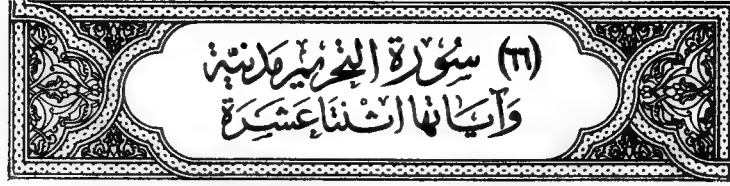 (٦٦) سُورَة التَّحْرِيمِ مَدَنِيَّة
وَآيَاتُهَا اثْنَتَا عَشَرَة